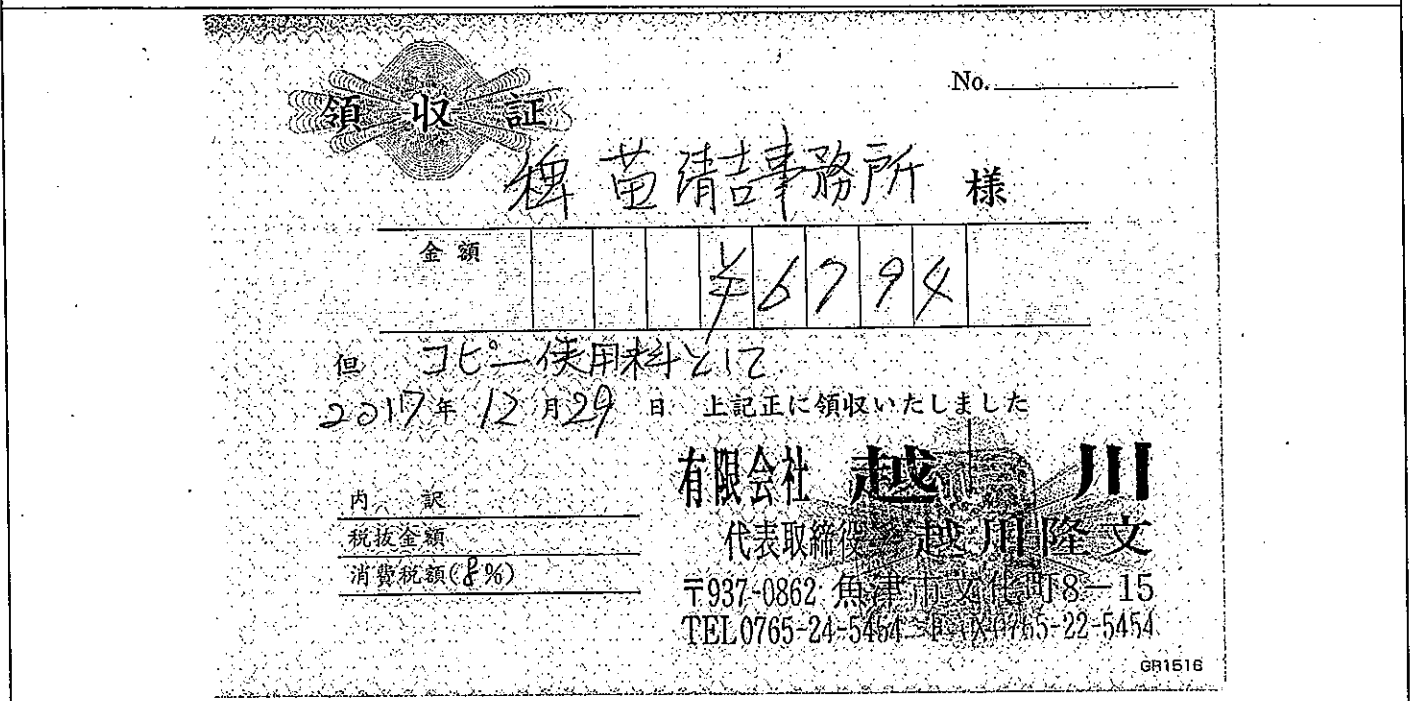 No.
領収証
稗苗清吉事務所 様
金額 ¥6794
但 コピー使用料として
2017年12月29日 上記正に領収いたしました
有限会社 越川
代表取締役 越川隆文
〒937-0862 魚津市文化町8-15
TEL0765-24-5454 FAX0765-22-5454
内訳
税抜金額
消費税額(8%)
GR1516